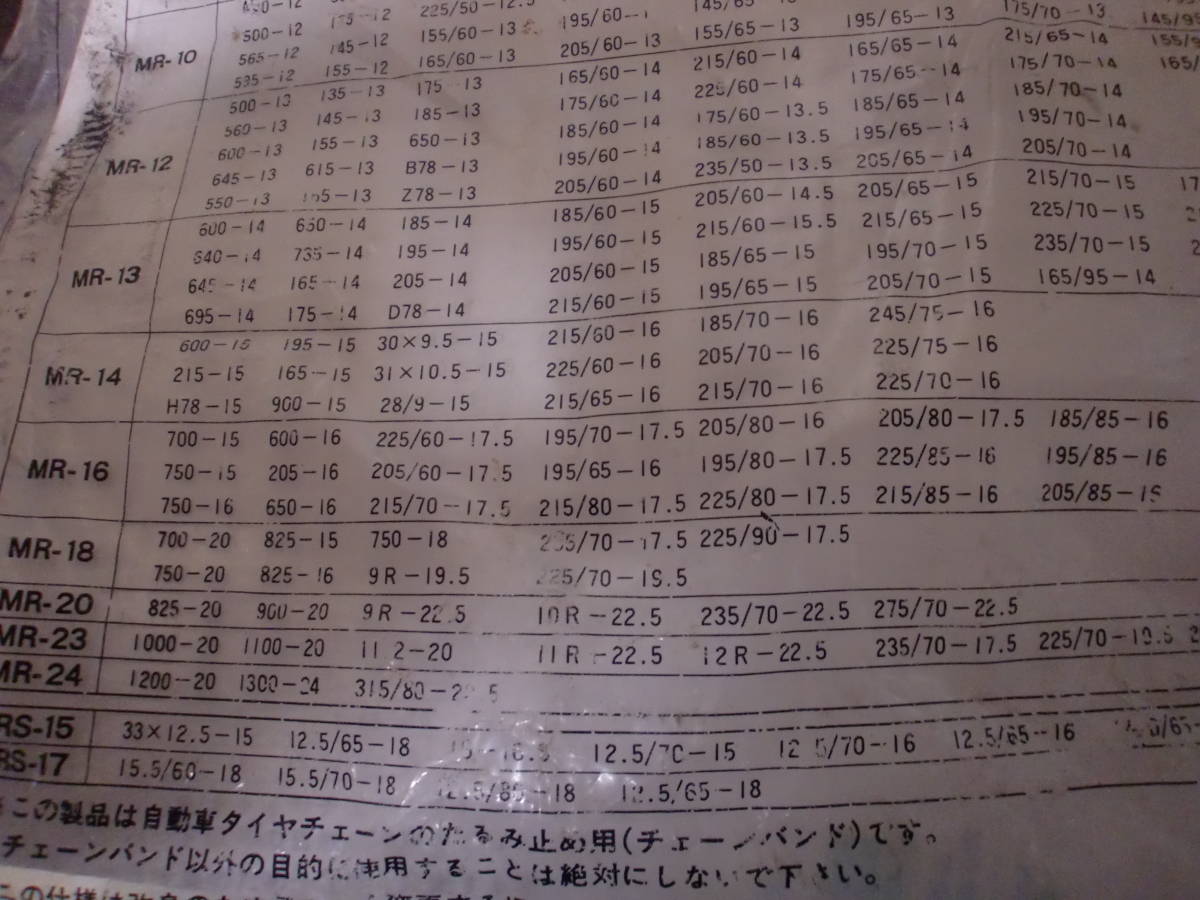 225/50-12.5
500-12 145-12 155/60-13 205/60-13 155/65-13 195/65-13 175/70-13
MR-10 565-12 155-12 165/60-13 165/60-14 215/60-14 165/65-14 215/65-14
595-12 135-13 175-13 175/60-14 225/60-14 175/65-14 175/70-14
500-13 145-13 185-13 185/60-14 175/60-13.5 185/65-14 185/70-14
560-13 155-13 650-13 195/60-14 185/60-13.5 195/65-14 195/70-14
MR-12 600-13 615-13 B78-13 205/60-14 235/50-13.5 205/65-14 205/70-14
645-13 Z78-13
550-13
600-14 650-14 185-14 185/60-15 205/60-14.5 205/65-15 215/70-15
640-14 735-14 195-14 195/60-15 215/60-15.5 215/65-15 225/70-15
MR-13 645-14 165-14 205-14 205/60-15 185/65-15 195/70-15 235/70-15
695-14 175-14 D78-14 215/60-15 195/65-15 205/70-15 165/95-14
600-15 195-15 30×9.5-15 215/60-16 185/70-16 245/75-16
MR-14 215-15 165-15 31×10.5-15 225/60-16 205/70-16 225/75-16
H78-15 900-15 28/9-15 215/65-16 215/70-16 225/70-16
700-15 600-16 225/60-17.5 195/70-17.5 205/80-16 205/80-17.5 185/85-16
MR-16 750-15 205-16 205/60-17.5 195/65-16 195/80-17.5 225/85-16 195/85-16
750-16 650-16 215/70-17.5 215/80-17.5 225/80-17.5 215/85-16 205/85-16
MR-18 700-20 825-15 750-18 225/90-17.5
750-20 825-16 9R-19.5 225/70-19.5
MR-20 825-20 900-20 9R-22.5 10R-22.5 235/70-22.5 275/70-22.5
MR-23 1000-20 1100-20 11R-22.5 12R-22.5 235/70-17.5 225/70-19.5
MR-24 1200-20 1300-24 315/80-22.5
RS-15 33×12.5-15 12.5/65-18 12.5/70-15 12.5/70-16 12.5/65-16
RS-17 15.5/60-18 15.5/70-18 12.5/80-18 12.5/65-18
この製品は自動車タイヤチェーンのたるみ止め用(チェーンバンド)です。
チェーンバンド以外の目的に使用することは絶対にしないで下さい。